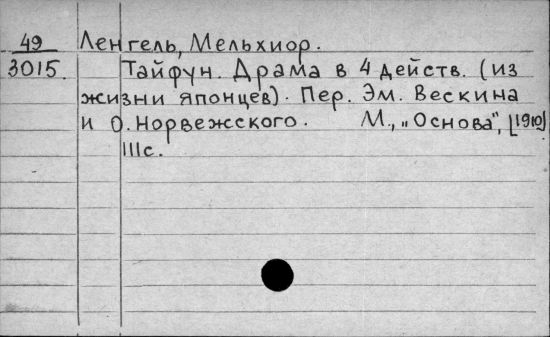 49 Ленгель, Мельхиор.
3015. Тайфун. Драма в 4 действ. (из
жизни японцев). Пер. Эм. Вескина
и О. Норвежского. М., „Основа", [1910]
111с.